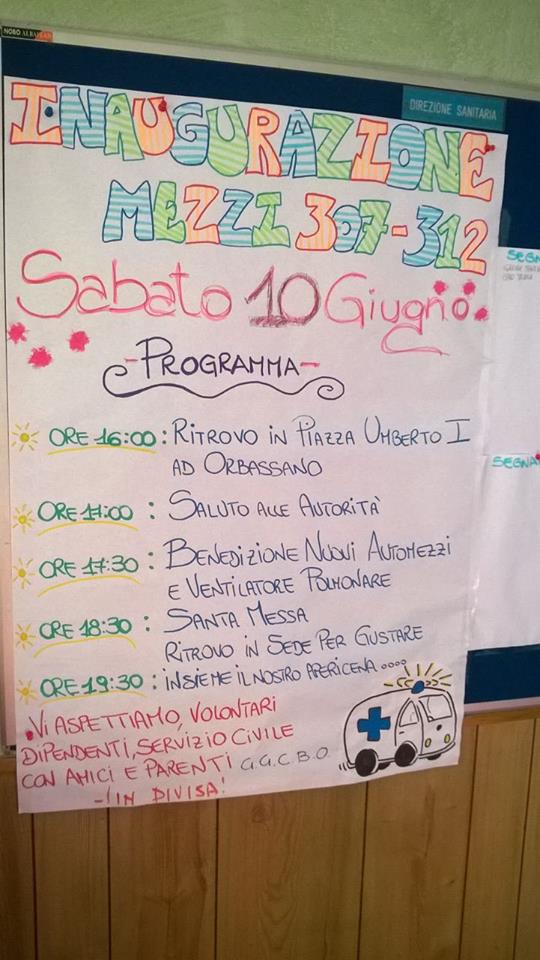 NOBO
DIREZIONE SANITARIA
INAUGURAZIONE
MEZZI 307-312
Sabato 10 Giugno
-PROGRAMMA-
ORE 16:00: RITROVO IN PIAZZA UMBERTO I
AD ORBASSANO
ORE 17:00: SALUTO ALLE AUTORITÀ
ORE 17:30: BENEDIZIONE NUOVI AUTOMEZZI
E VENTILATORE POLMONARE
ORE 18:30: SANTA MESSA
RITROVO IN SEDE PER GUSTARE
ORE 19:30: INSIEME IL NOSTRO APERICENA....
VI ASPETTIAMO, VOLONTARI
DIPENDENTI, SERVIZIO CIVILE
CON AMICI E PARENTI G.G.C.B.O.
-IN DIVISA!
SEGNA
SEGNA